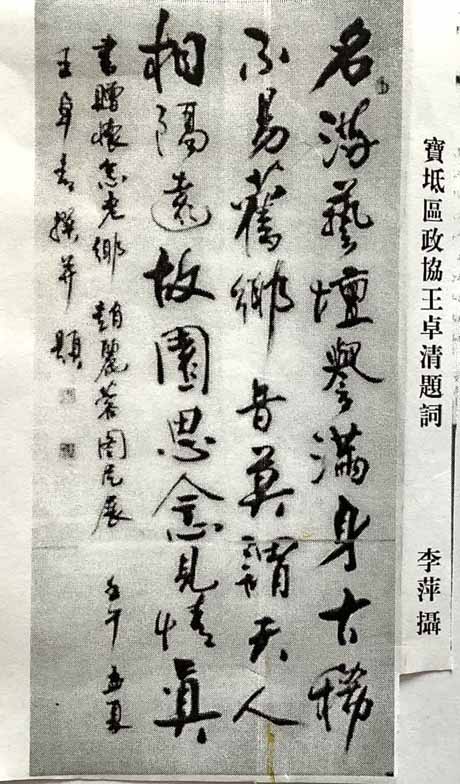 寶坻區政協王卓清題詞 李萍攝
名游藝壇譽滿身古稀
不易舊鄉音莫謂天人
相隔遠故園思念見情真
書贈懷念老鄉趙麗蓉圖片展 壬午孟夏
王卓青撰并題